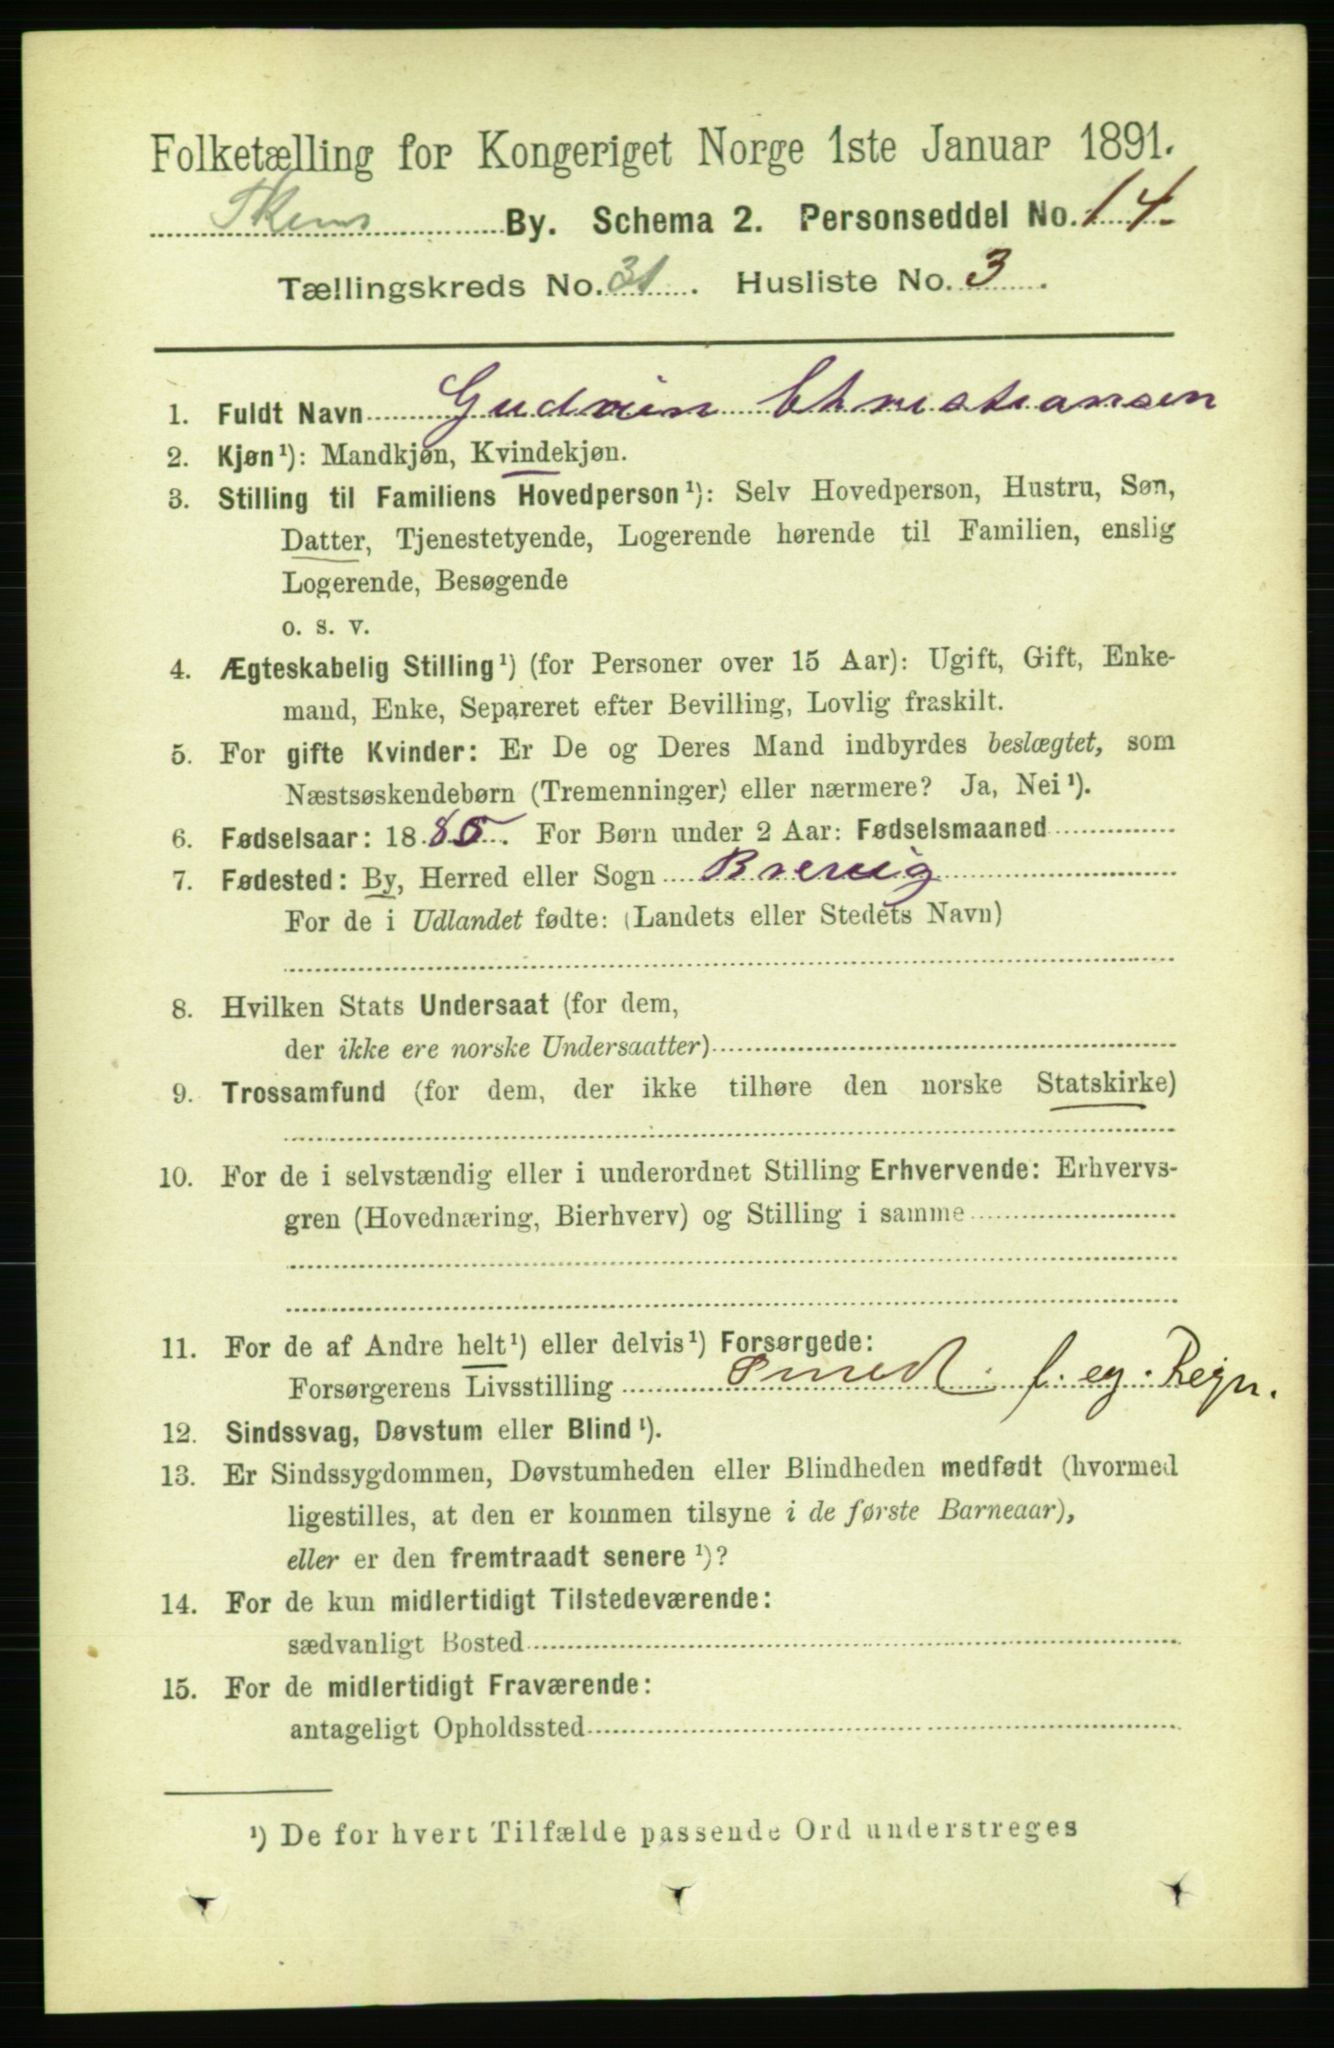 Folketælling for Kongeriget Norge 1ste Januar 1891.
Skens By. Schema 2. Personseddel No. 14.
Tællingskreds No. 31. Husliste No. 3.
1. Fuldt Navn Gudrun Christiansen
2. Kjøn¹): Mandkjøn, Kvindekjøn.
3. Stilling til Familiens Hovedperson¹): Selv Hovedperson, Hustru, Søn,
Datter, Tjenestetyende, Logerende hørende til Familien, enslig
Logerende, Besøgende
o. s. v.
4. Ægteskabelig Stilling¹) (for Personer over 15 Aar): Ugift, Gift, Enke-
mand, Enke, Separeret efter Bevilling, Lovlig fraskilt.
5. For gifte Kvinder: Er De og Deres Mand indbyrdes beslægtet, som
Næstsøskendebørn (Tremenninger) eller nærmere? Ja, Nei¹).
6. Fødselsaar: 1885. For Børn under 2 Aar: Fødselsmaaned
7. Fødested: By, Herred eller Sogn Brevig
For de i Udlandet fødte: (Landets eller Stedets Navn)
8. Hvilken Stats Undersaat (for dem,
der ikke ere norske Undersaatter)
9. Trossamfund (for dem, der ikke tilhøre den norske Statskirke)
10. For de i selvstændig eller i underordnet Stilling Erhvervende: Erhvervs-
gren (Hovednæring, Bierhverv) og Stilling i samme
11. For de af Andre helt¹) eller delvis¹) Forsørgede:
Forsørgerens Livsstilling Smed f. eg. Regn.
12. Sindssvag, Døvstum eller Blind¹).
13. Er Sindssygdommen, Døvstumheden eller Blindheden medfødt (hvormed
ligestilles, at den er kommen tilsyne i de første Barneaar),
eller er den fremtraadt senere¹)?
14. For de kun midlertidigt Tilstedeværende:
sædvanligt Bosted
15. For de midlertidigt Fraværende:
antageligt Opholdssted
¹) De for hvert Tilfælde passende Ord understreges